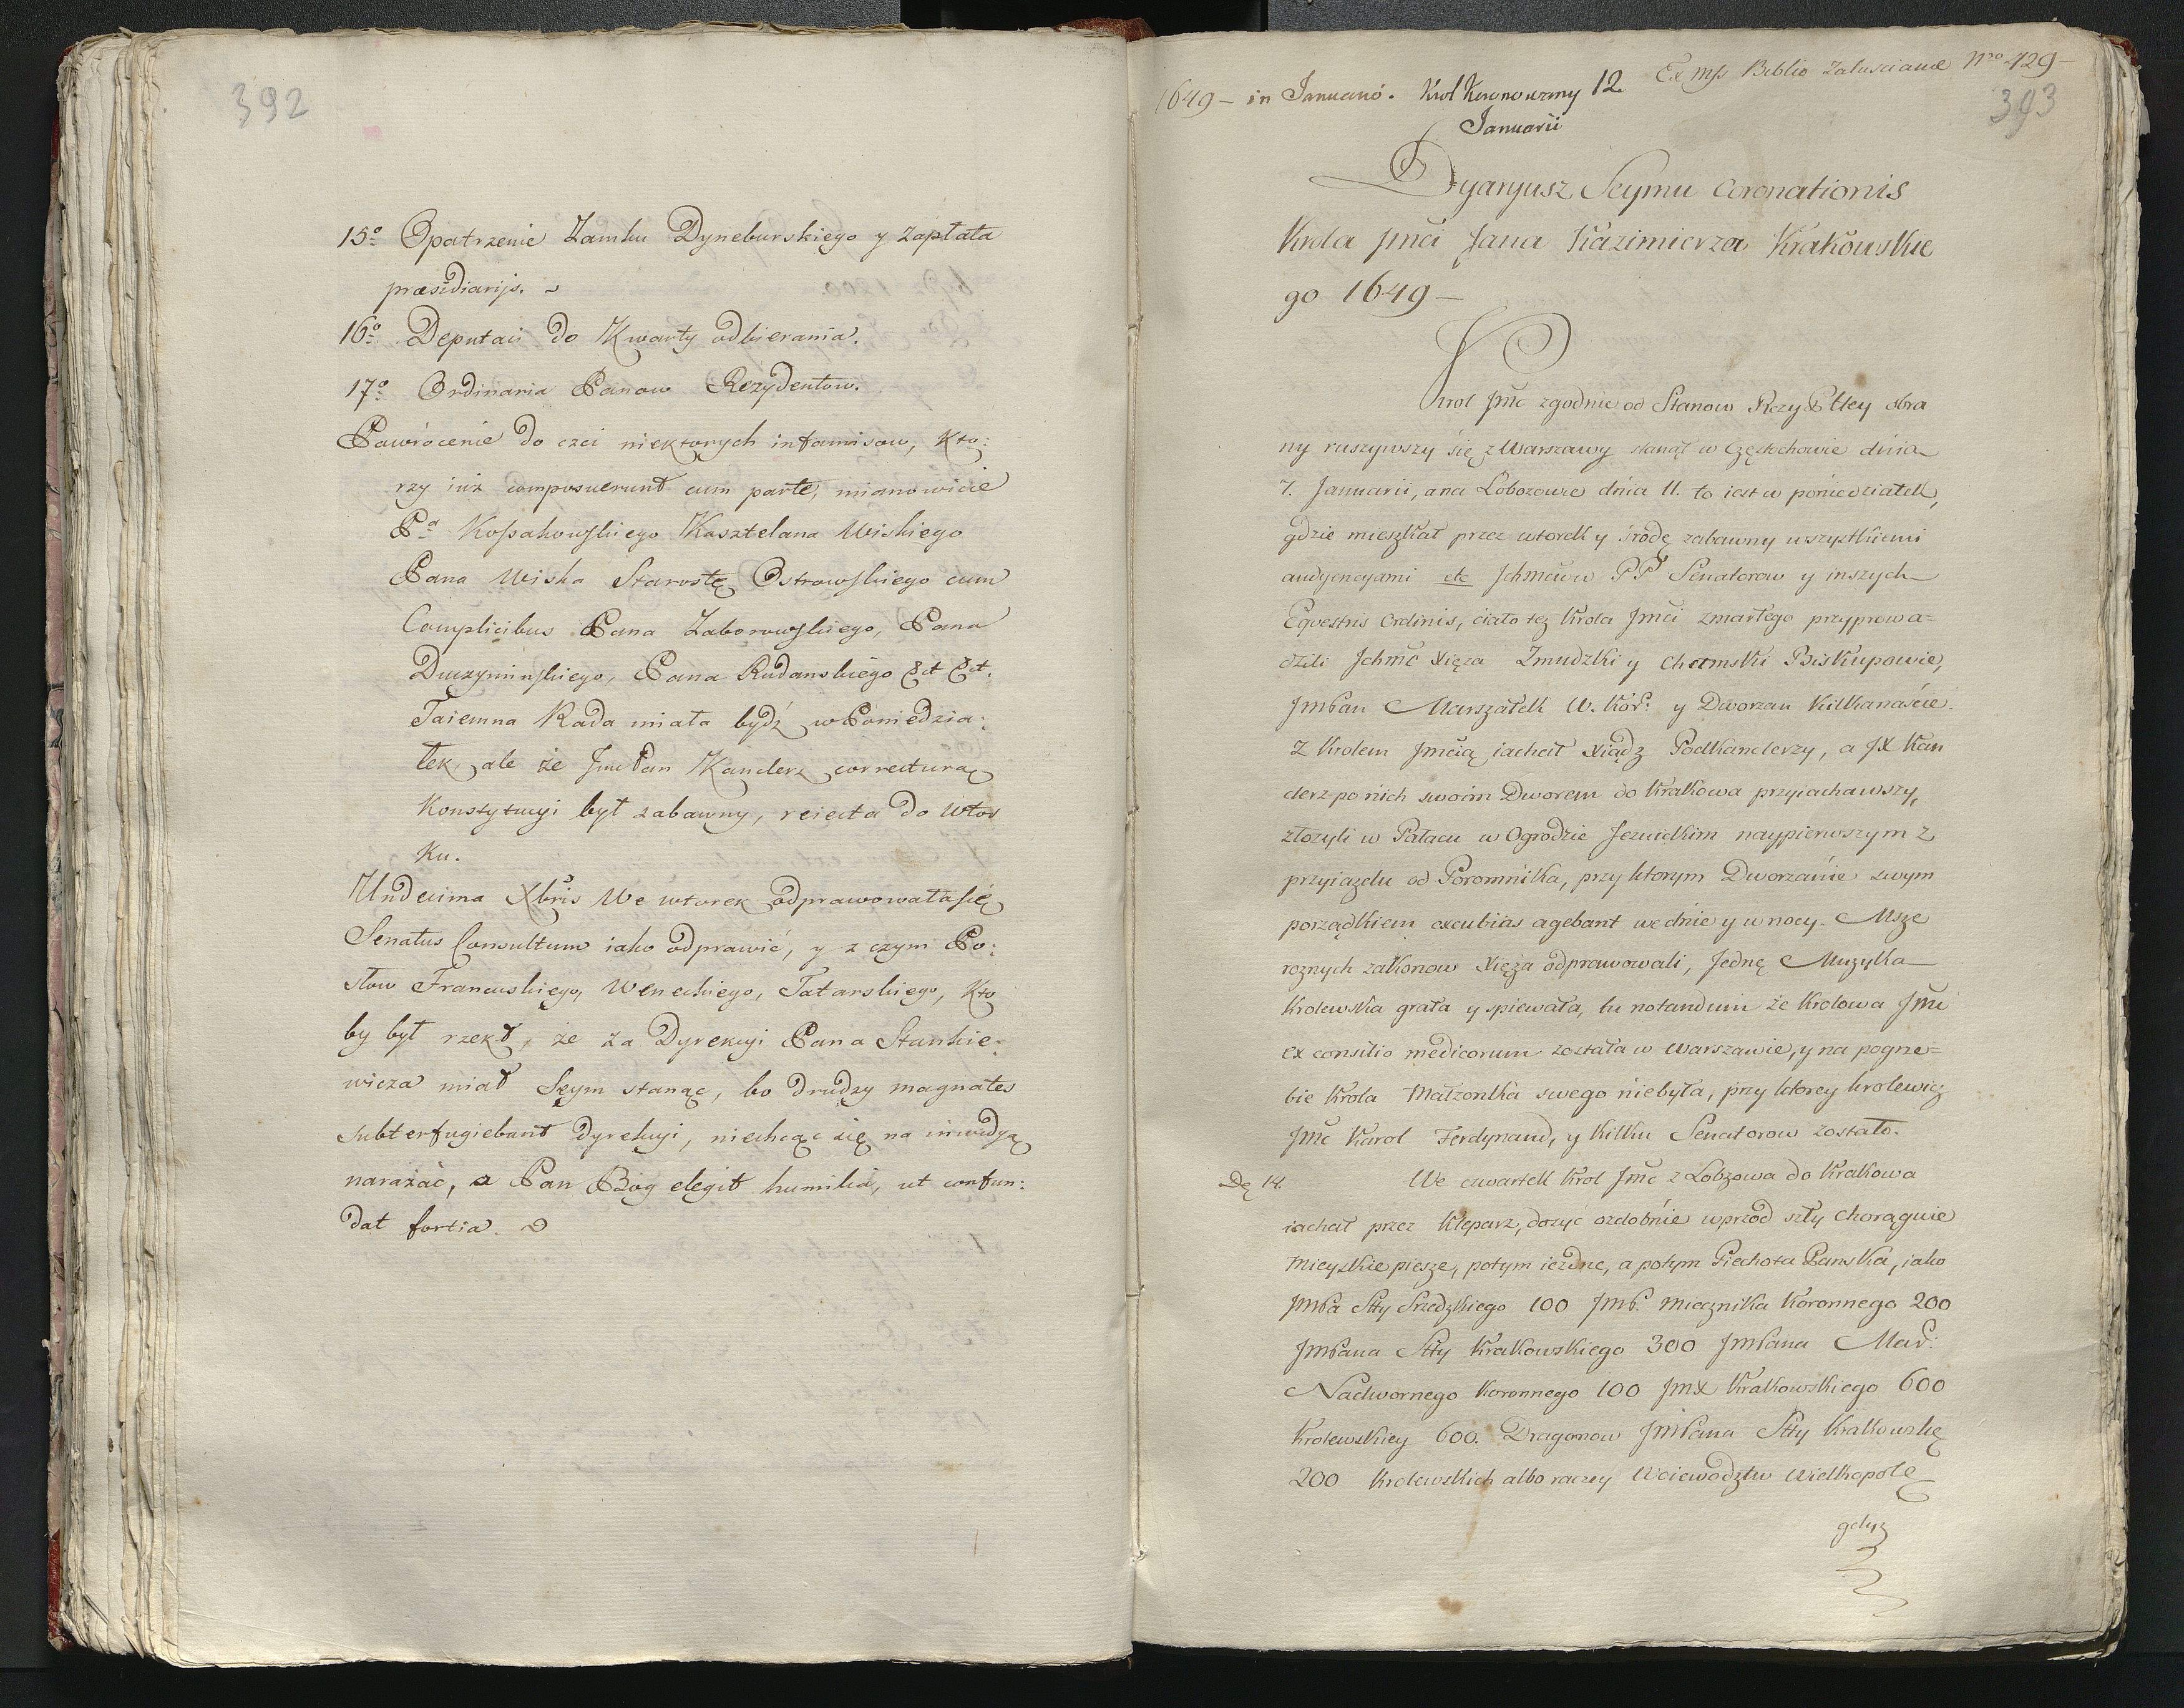 392
15º Opatrzenie Zamku Dyneburskiego y Zapłata
præsidiarijs.
16º Deputaci do Kwarty odbierania.
17º Ordinaria Panow Rezydentow.
Powrocenie do czci niektorych infamisow, kto:
rzy iuż composuerunt cum parte, mianowicie
Pª Kossakowskiego Kasztelana Wiskiego
Pana Wiska Starostę Ostrowskiego cum
Complicibus Pana Zaborowskiego, Pana
Duczyminskiego, Pana Rudanskiego &ct &ct.
Taiemna Rada miała bydź w Poniedzia:
łek, ale że Jmć Pan Kanclerz correcturą
Konstytucyi był zabawny, reiecta do Wtor
ku.
Undecima Xbris We wtorek odprawowała się
Senatus Consultum iako odprawić, y z czym Po:
słow Francuskiego, Weneckiego, Tatarskiego, kto
by był rzekł, że za Dyrekcyi Pana Stankie:
wicza miał Seym stanąc, bo drudzy magnates
subterfugiebant dyrekcyi, niechcąc się na inwidyą
narażać, a Pan Bog elegit humilia, ut confun:
dat fortia.
1649 – in Januario. Krol Koronowany 12. Ex Mss Biblio Zalusciane Nro 429
Januarii
393
Dyaryusz Seymu Coronationis
Krola Jmci Jana Kazimierza Krakowskie
go 1649 –
Krol Jmc zgodnie od Stanow RzyPltey obra
ny ruszywszy się z Warszawy stanął w Częstochowie dnia
7. Januarii, a na Lobozowie dnia 11. to iest w poniedziałek,
gdzie mieszkał przez wtorek y srodę zabawny wszystkiemi
audyencyami etc Jchmcuw PP Senatorow y inszych
Equestris Ordinis, ciało tez Krola Jmci zmarłego przyprowa=
dzili Jchmc Xięza Zmudzki y Chełmski Biskupowie,
JmPan Marszałek W. Kor: y Dworzan kilkanascie.
Z Krolem Jmcią iachał Xiądz Podkanclerzy, a JX Kan
clerz po nich swoim Dworem do Krakowa przyiachawszy,
złozyli w Pałacu w Ogrodzie Jezuickim naypierwszym z
przyiazdu od Poromnika, przy ktorym Dworzanie swym
porządkiem excubias agebant we dnie y w nocy. Msze
roznych zakonow Xięża odprawowali, Jednę Muzyka
Krolewska grała y spiewała, tu notandum że Krolowa Jmc
ex consilio medicorum została w Warszawie, y na pogrze=
bie Krola Małzonka swego niebyła, przy ktorey Krolewic
Jmc Karol Ferdynand, y kilku Senatorow zostało.
De 14. We czwartek Krol Jmc z Lobzowa do Krakowa
iachał przez Kleparz, dosyć ozdobnie wprzod szły Chorągwie
Mieyskie piesze, potym iezdne, a potym Piechota Panska, iako
JmPa Stty Srzedzkiego 100 JmP. Miecznika Koronnego 200
JmPana Stty Krakowskiego 300 JmPana Mar:
Nadwornego Koronnego 100 JmX Krakowskiego 600
Krolewskiey 600. Dragonow JmPana Stty Krakowskie
200 Krolewskich albo raczey Woiewodztw Wielkopols
gdyz